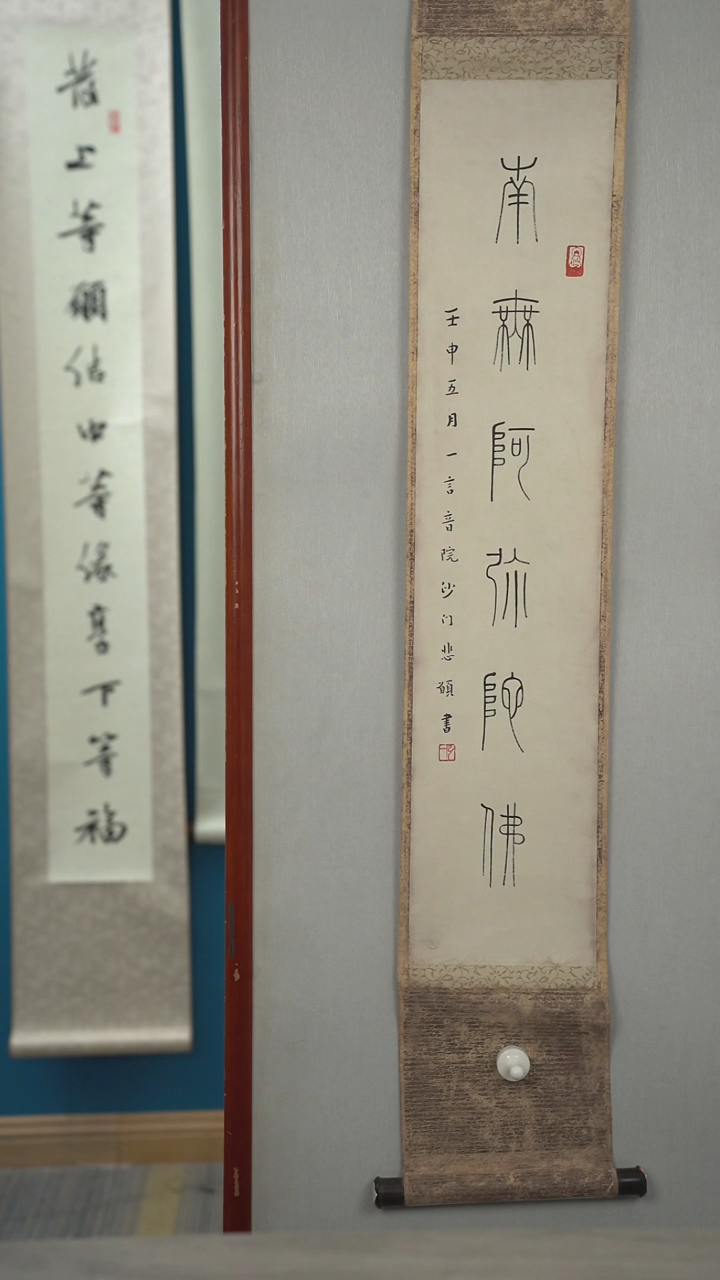 南無阿弥陀佛
壬申五月一言音院沙门悲願書
發上等願结中等缘享下等福